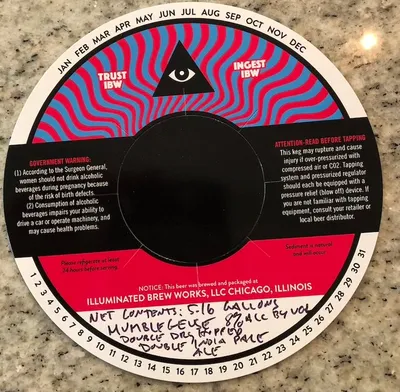 JAN FEB MAR APR MAY JUN JUL AUG SEP OCT NOV DEC
TRUST
IBW
INGEST
IBW
GOVERNMENT WARNING:
(1) According to the Surgeon General,
women should not drink alcoholic
beverages during pregnancy because
of the risk of birth defects.
(2) Consumption of alcoholic
beverages impairs your ability to
drive a car or operate machinery, and
may cause health problems.
ATTENTION-READ BEFORE TAPPING
This keg may rupture and cause
injury if over-pressurized with
compressed air or CO2. Tapping
system and pressurized regulator
should each be equipped with a
pressure relief (blow off) device. If
you are not familiar with tapping
equipment, consult your retailer or
local beer distributor.
Please refrigerate at least
24 hours before serving.
Sediment is natural
NOTICE: This beer was brewed and packaged at
ILLUMINATED BREW WORKS, LLC CHICAGO, ILLINOIS
NET CONTENTS: 5.16 GALLONS
MUMBLEGEUSE 8% ALC BY VOL
DOUBLE DRY HOPPED
DOUBLE INDIA PALE
ALE
1 2 3 4 5 6 7 8 9 10 11 12 13 14 15 16 17 18 19 20 21 22 23 24 25 26 27 28 29 30 31